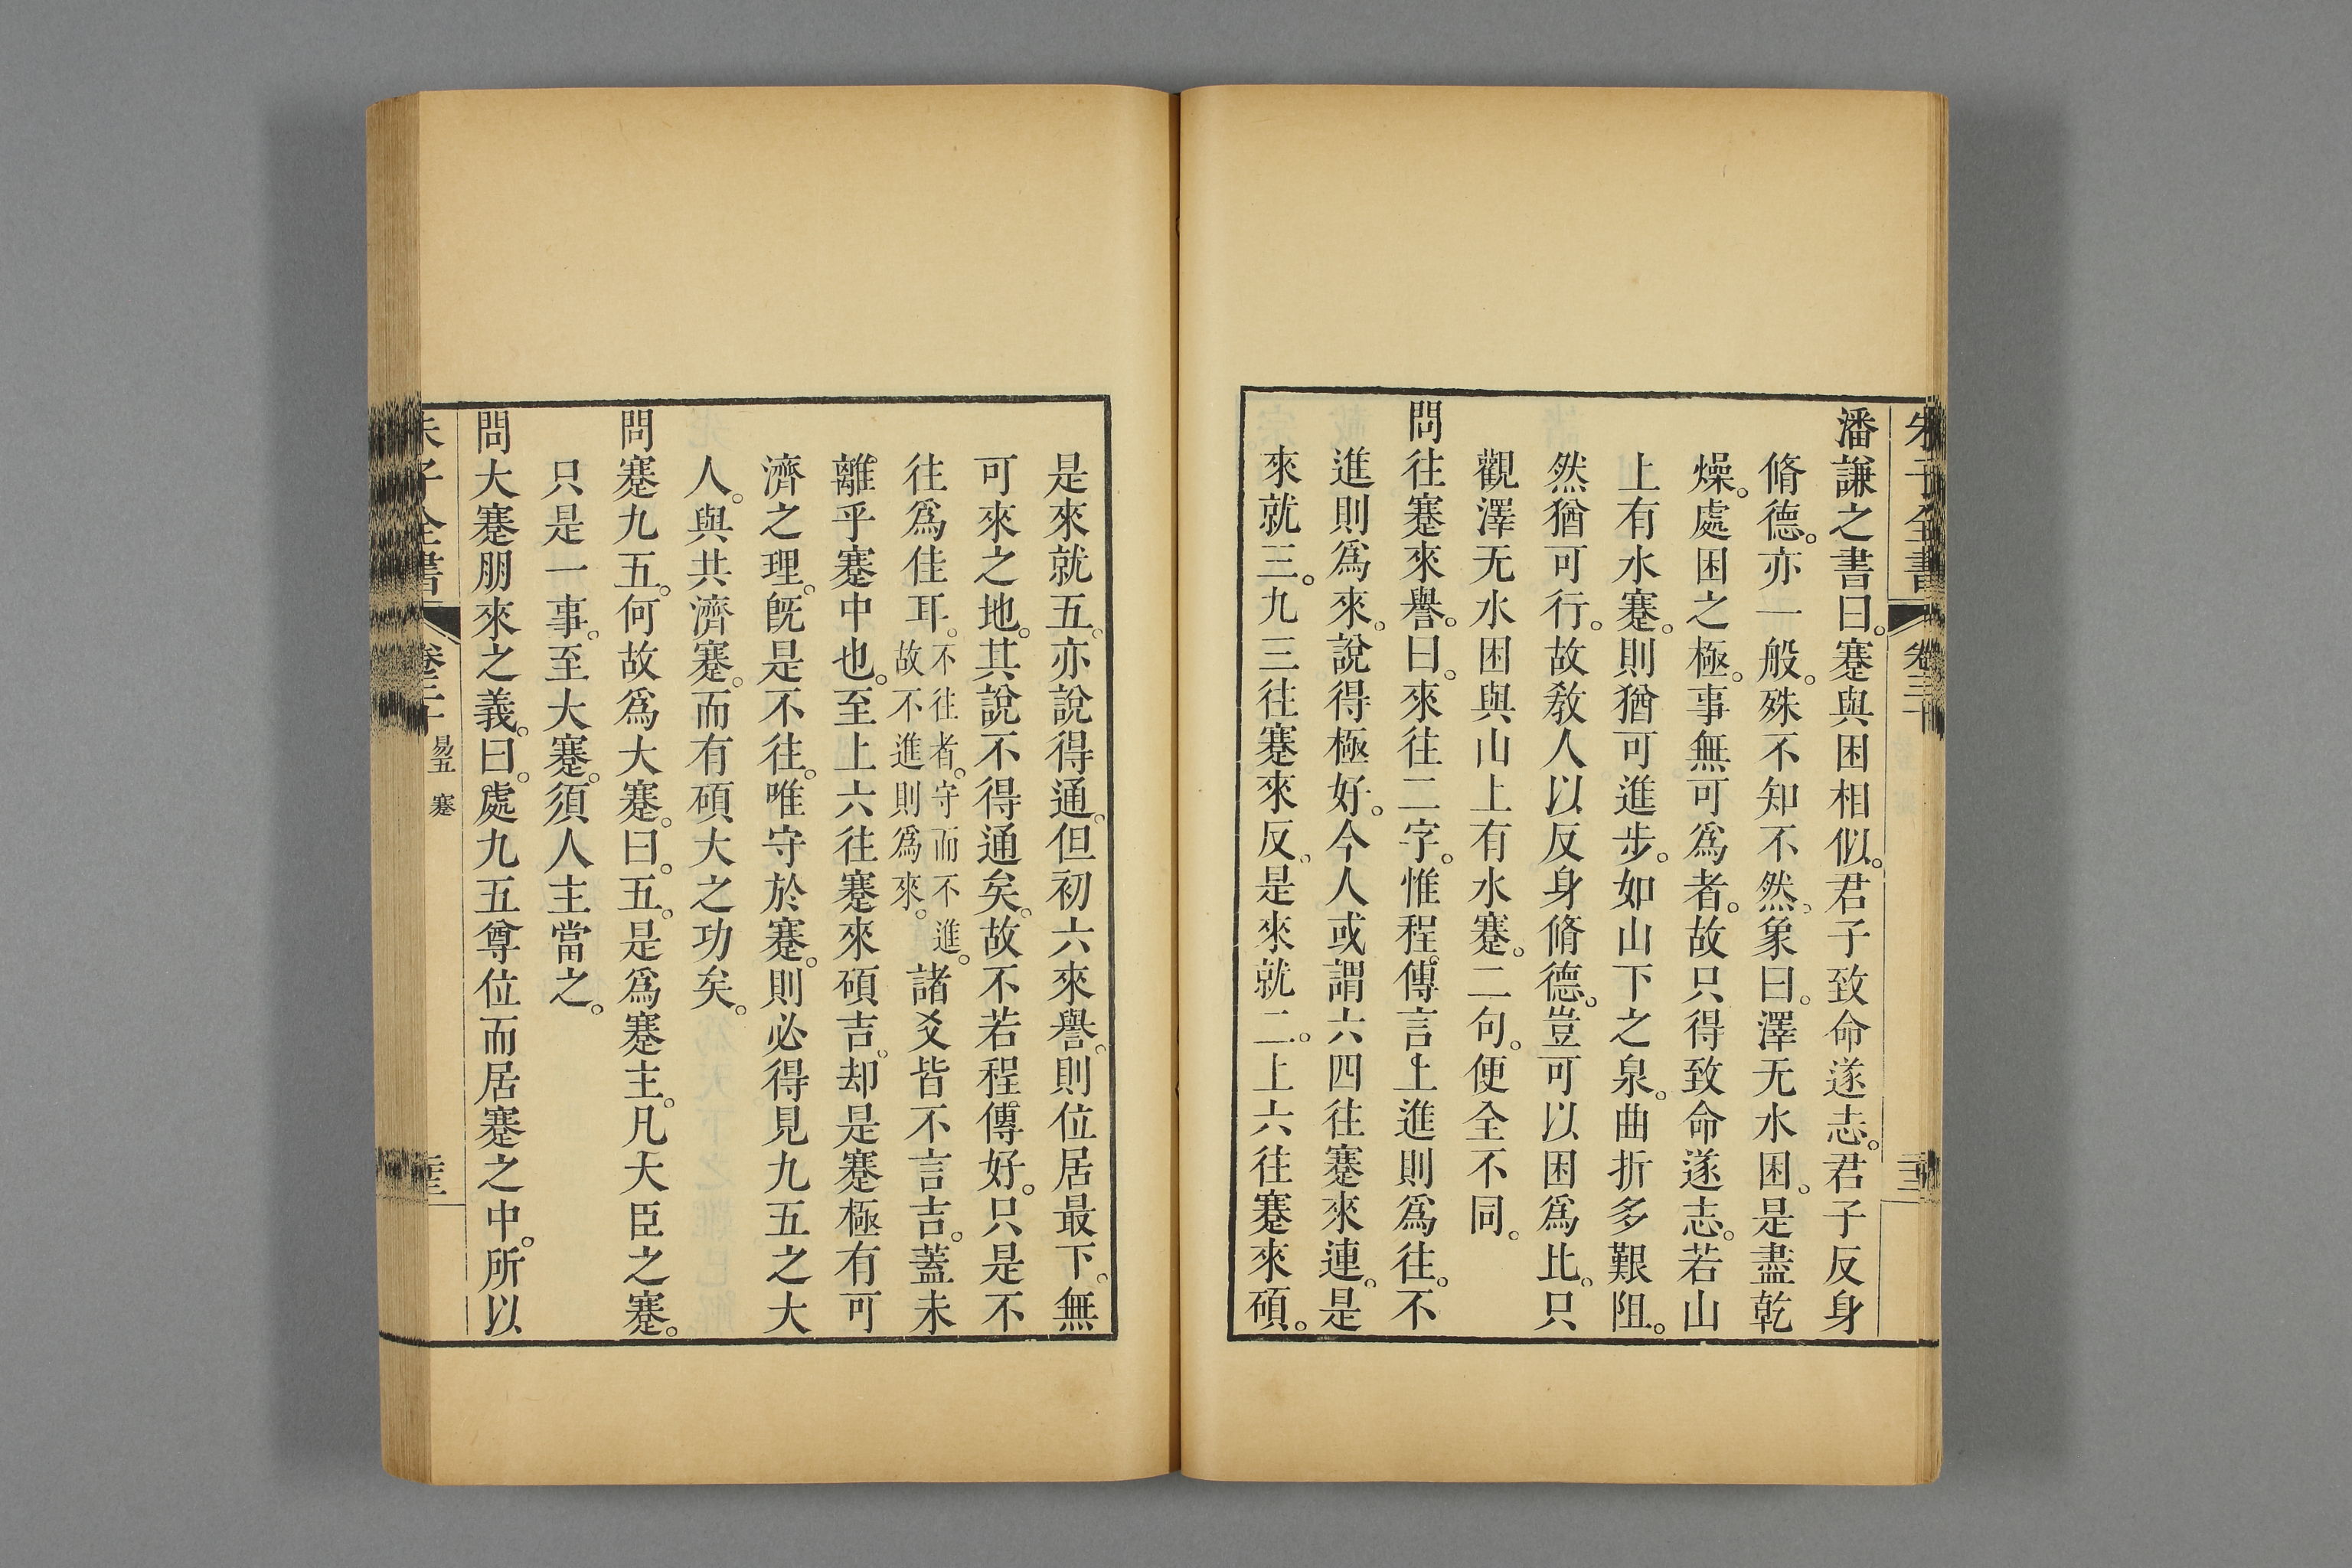 潘謙之書曰。蹇與困相似。君子致命遂志。君子反身
脩德。亦一般。殊不知不然。象曰。澤无水困。是盡乾
燥。處困之極。事無可爲者。故只得致命遂志。若山
上有水蹇。則猶可進步。如山下之泉。曲折多艱阻。
然猶可行。故敎人以反身脩德。豈可以困爲比。只
觀澤无水困與山上有水蹇。二句。便全不同。
問往蹇來譽。曰。來往二字。惟程傳言上進則爲往。不
進則爲來。說得極好。今人或謂六四往蹇來連。是
來就三。九三往蹇來反。是來就二。上六往蹇來碩。
是來就五。亦說得通。但初六來譽。則位居最下。無
可來之地。其說不得通矣。故不若程傳好。只是不
往爲佳耳。不往者。守而不進。故不進則爲來。諸爻皆不言吉。蓋未
離乎蹇中也。至上六往蹇來碩吉。却是蹇極有可
濟之理。旣是不往。唯守於蹇。則必得見九五之大
人。與共濟蹇。而有碩大之功矣。
問蹇九五。何故爲大蹇。曰。五。是爲蹇主。凡大臣之蹇。
只是一事。至大蹇。須人主當之。
問大蹇朋來之義。曰。處九五尊位而居蹇之中。所以
朱子全書
易五 蹇